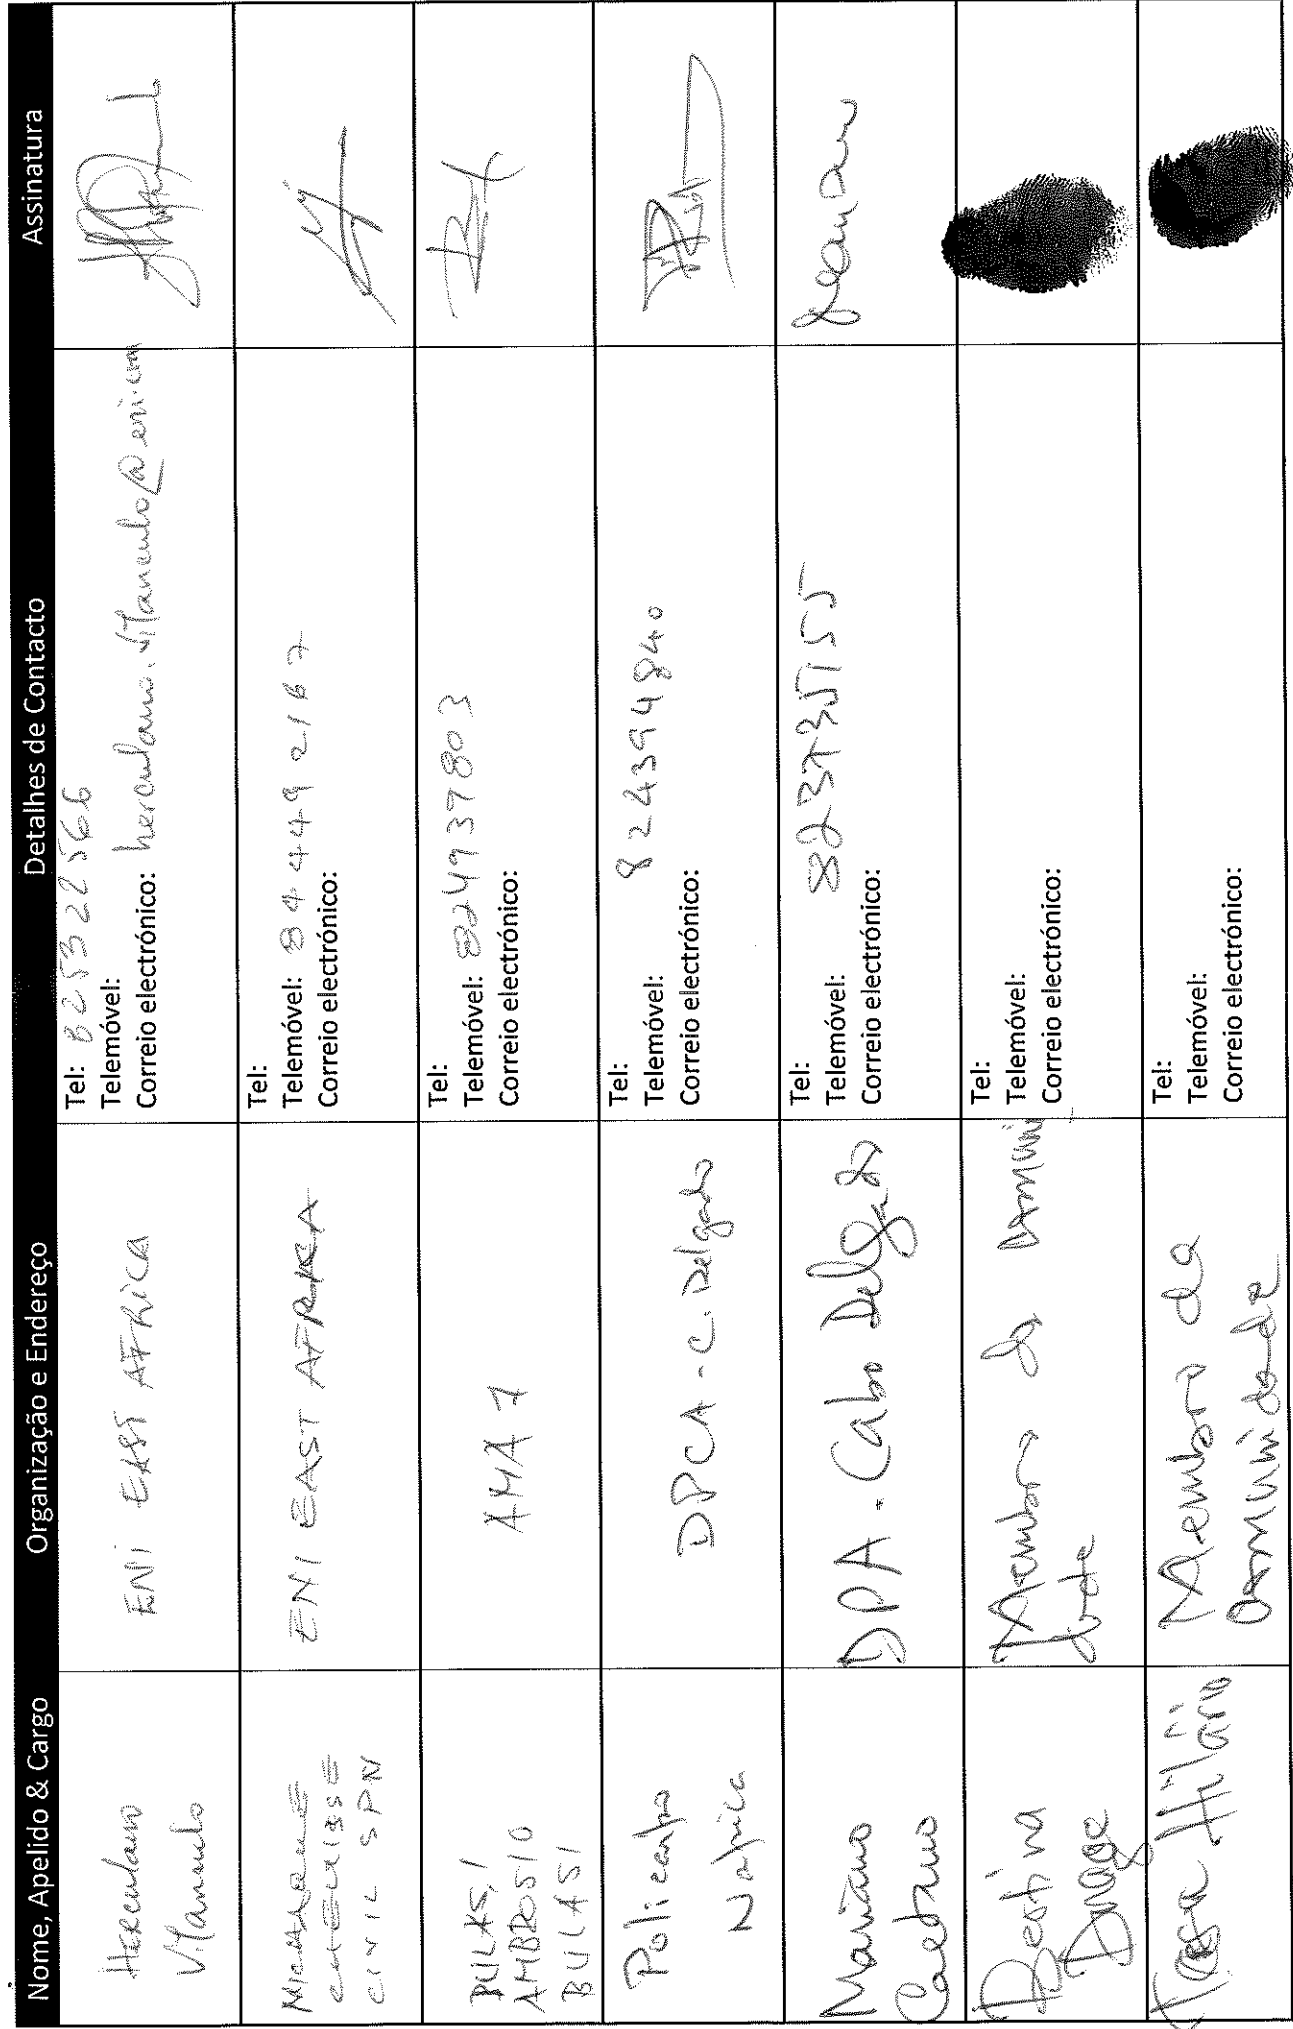 Nome, Apelido & Cargo Organização e Endereço Detalhes de Contacto Assinatura
Herculano
Vilanculo
ENI EAST AFRICA
Tel: 825322566
Telemóvel:
Correio electrónico: herculano.vilanculo@eni.com
CIVIL SPN
ENI EAST AFRICA
Tel:
Telemóvel: 844492167
Correio electrónico:
BULASI
AMBROSIO
BULASI
AMA 7
Tel:
Telemóvel: 824937803
Correio electrónico:
Policarpo
Napica
DPCA - C. Delgado
Tel:
Telemóvel: 824394840
Correio electrónico:
Mariano
Caetano
DPA - Cabo Delgado
Tel:
Telemóvel: 823735155
Correio electrónico:
Membro da comuni
dade
Tel:
Telemóvel:
Correio electrónico:
Rosa Hilário
Membro da
comunidade
Tel:
Telemóvel:
Correio electrónico: